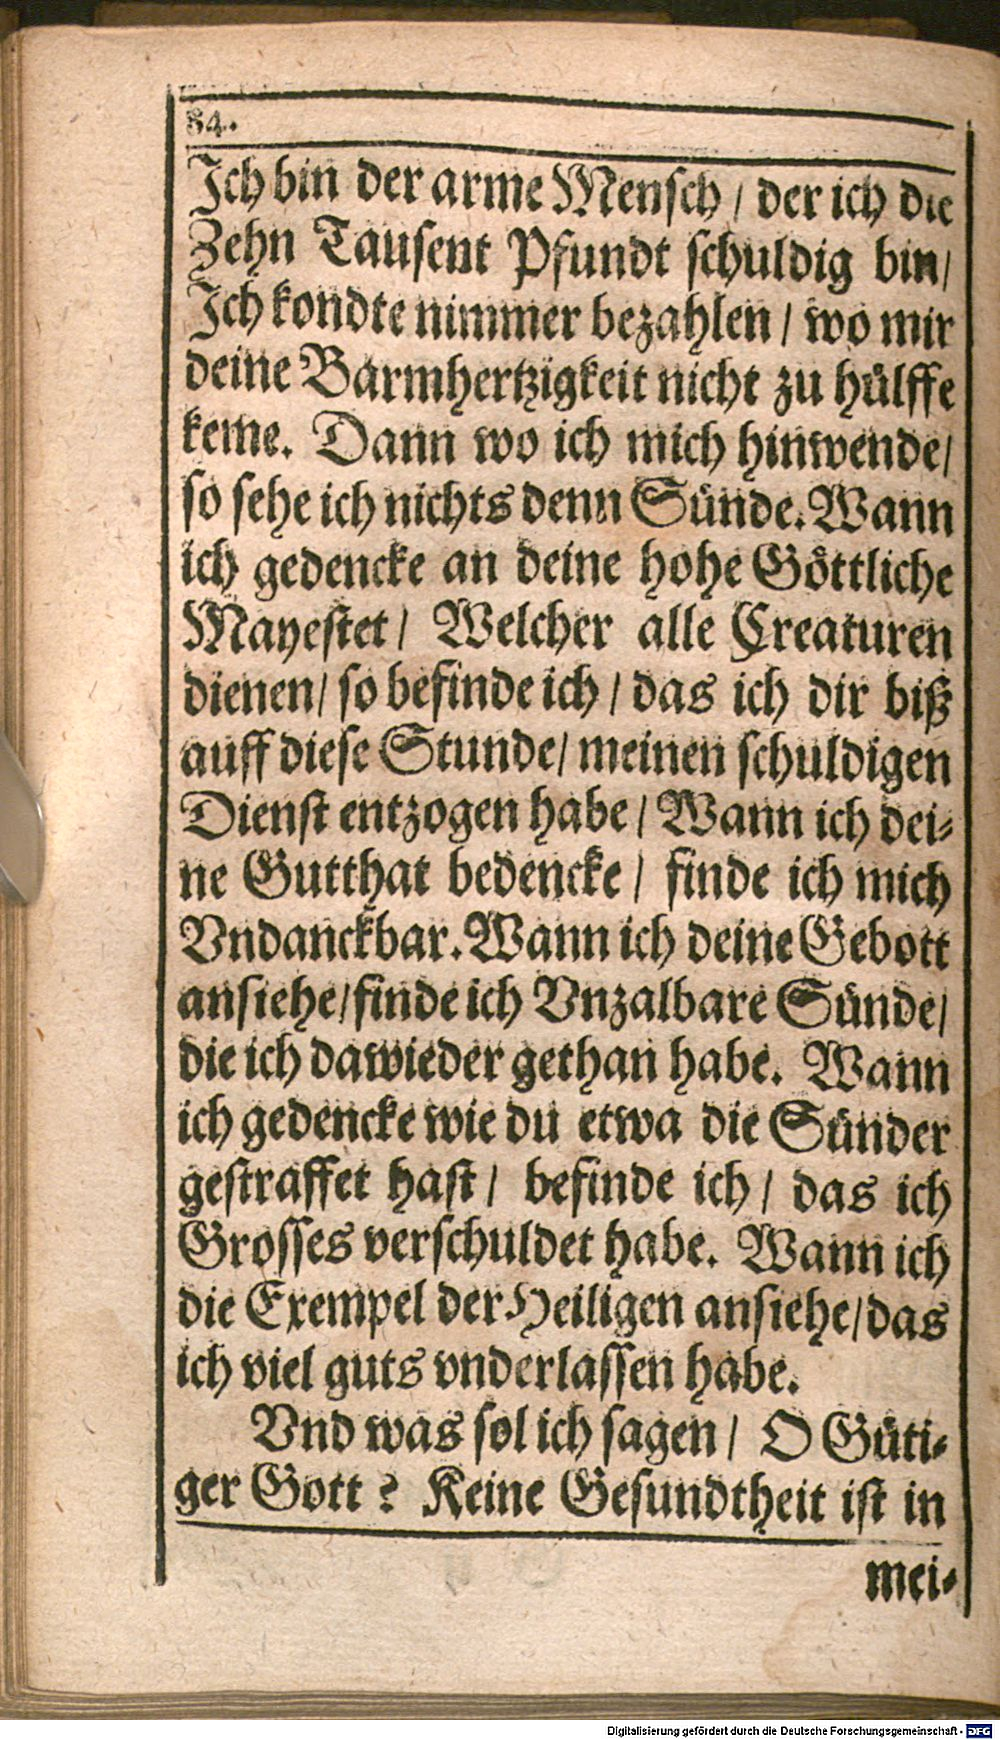 84.
Ich bin der arme Mensch / der ich die
Zehn Tausent Pfundt schuldig bin /
Ich kondte nimmer bezahlen / wo mir
deine Barmhertzigkeit nicht zu hülffe
keme. Dann wo ich mich hinwende /
so sehe ich nichts denn Sünde. Wann
ich gedencke an deine hohe Göttliche
Mayestet / Welcher alle Creaturen
dienen / so befinde ich / das ich dir biß
auff diese Stunde / meinen schuldigen
Dienst entzogen habe / Wann ich dei-
ne Gutthat bedencke / finde ich mich
Vndanckbar. Wann ich deine Gebott
ansiehe / finde ich Vnzalbare Sünde /
die ich dawieder gethan habe. Wann
ich gedencke wie du etwa die Sünder
gestraffet hast / befinde ich / das ich
Grosses verschuldet habe. Wann ich
die Exempel der Heiligen ansiehe / das
ich viel guts vnderlassen habe.
Vnd was sol ich sagen / O Güti-
ger Gott ? Keine Gesundtheit ist in
mei-
Digitalisierung gefördert durch die Deutsche Forschungsgemeinschaft - DFG